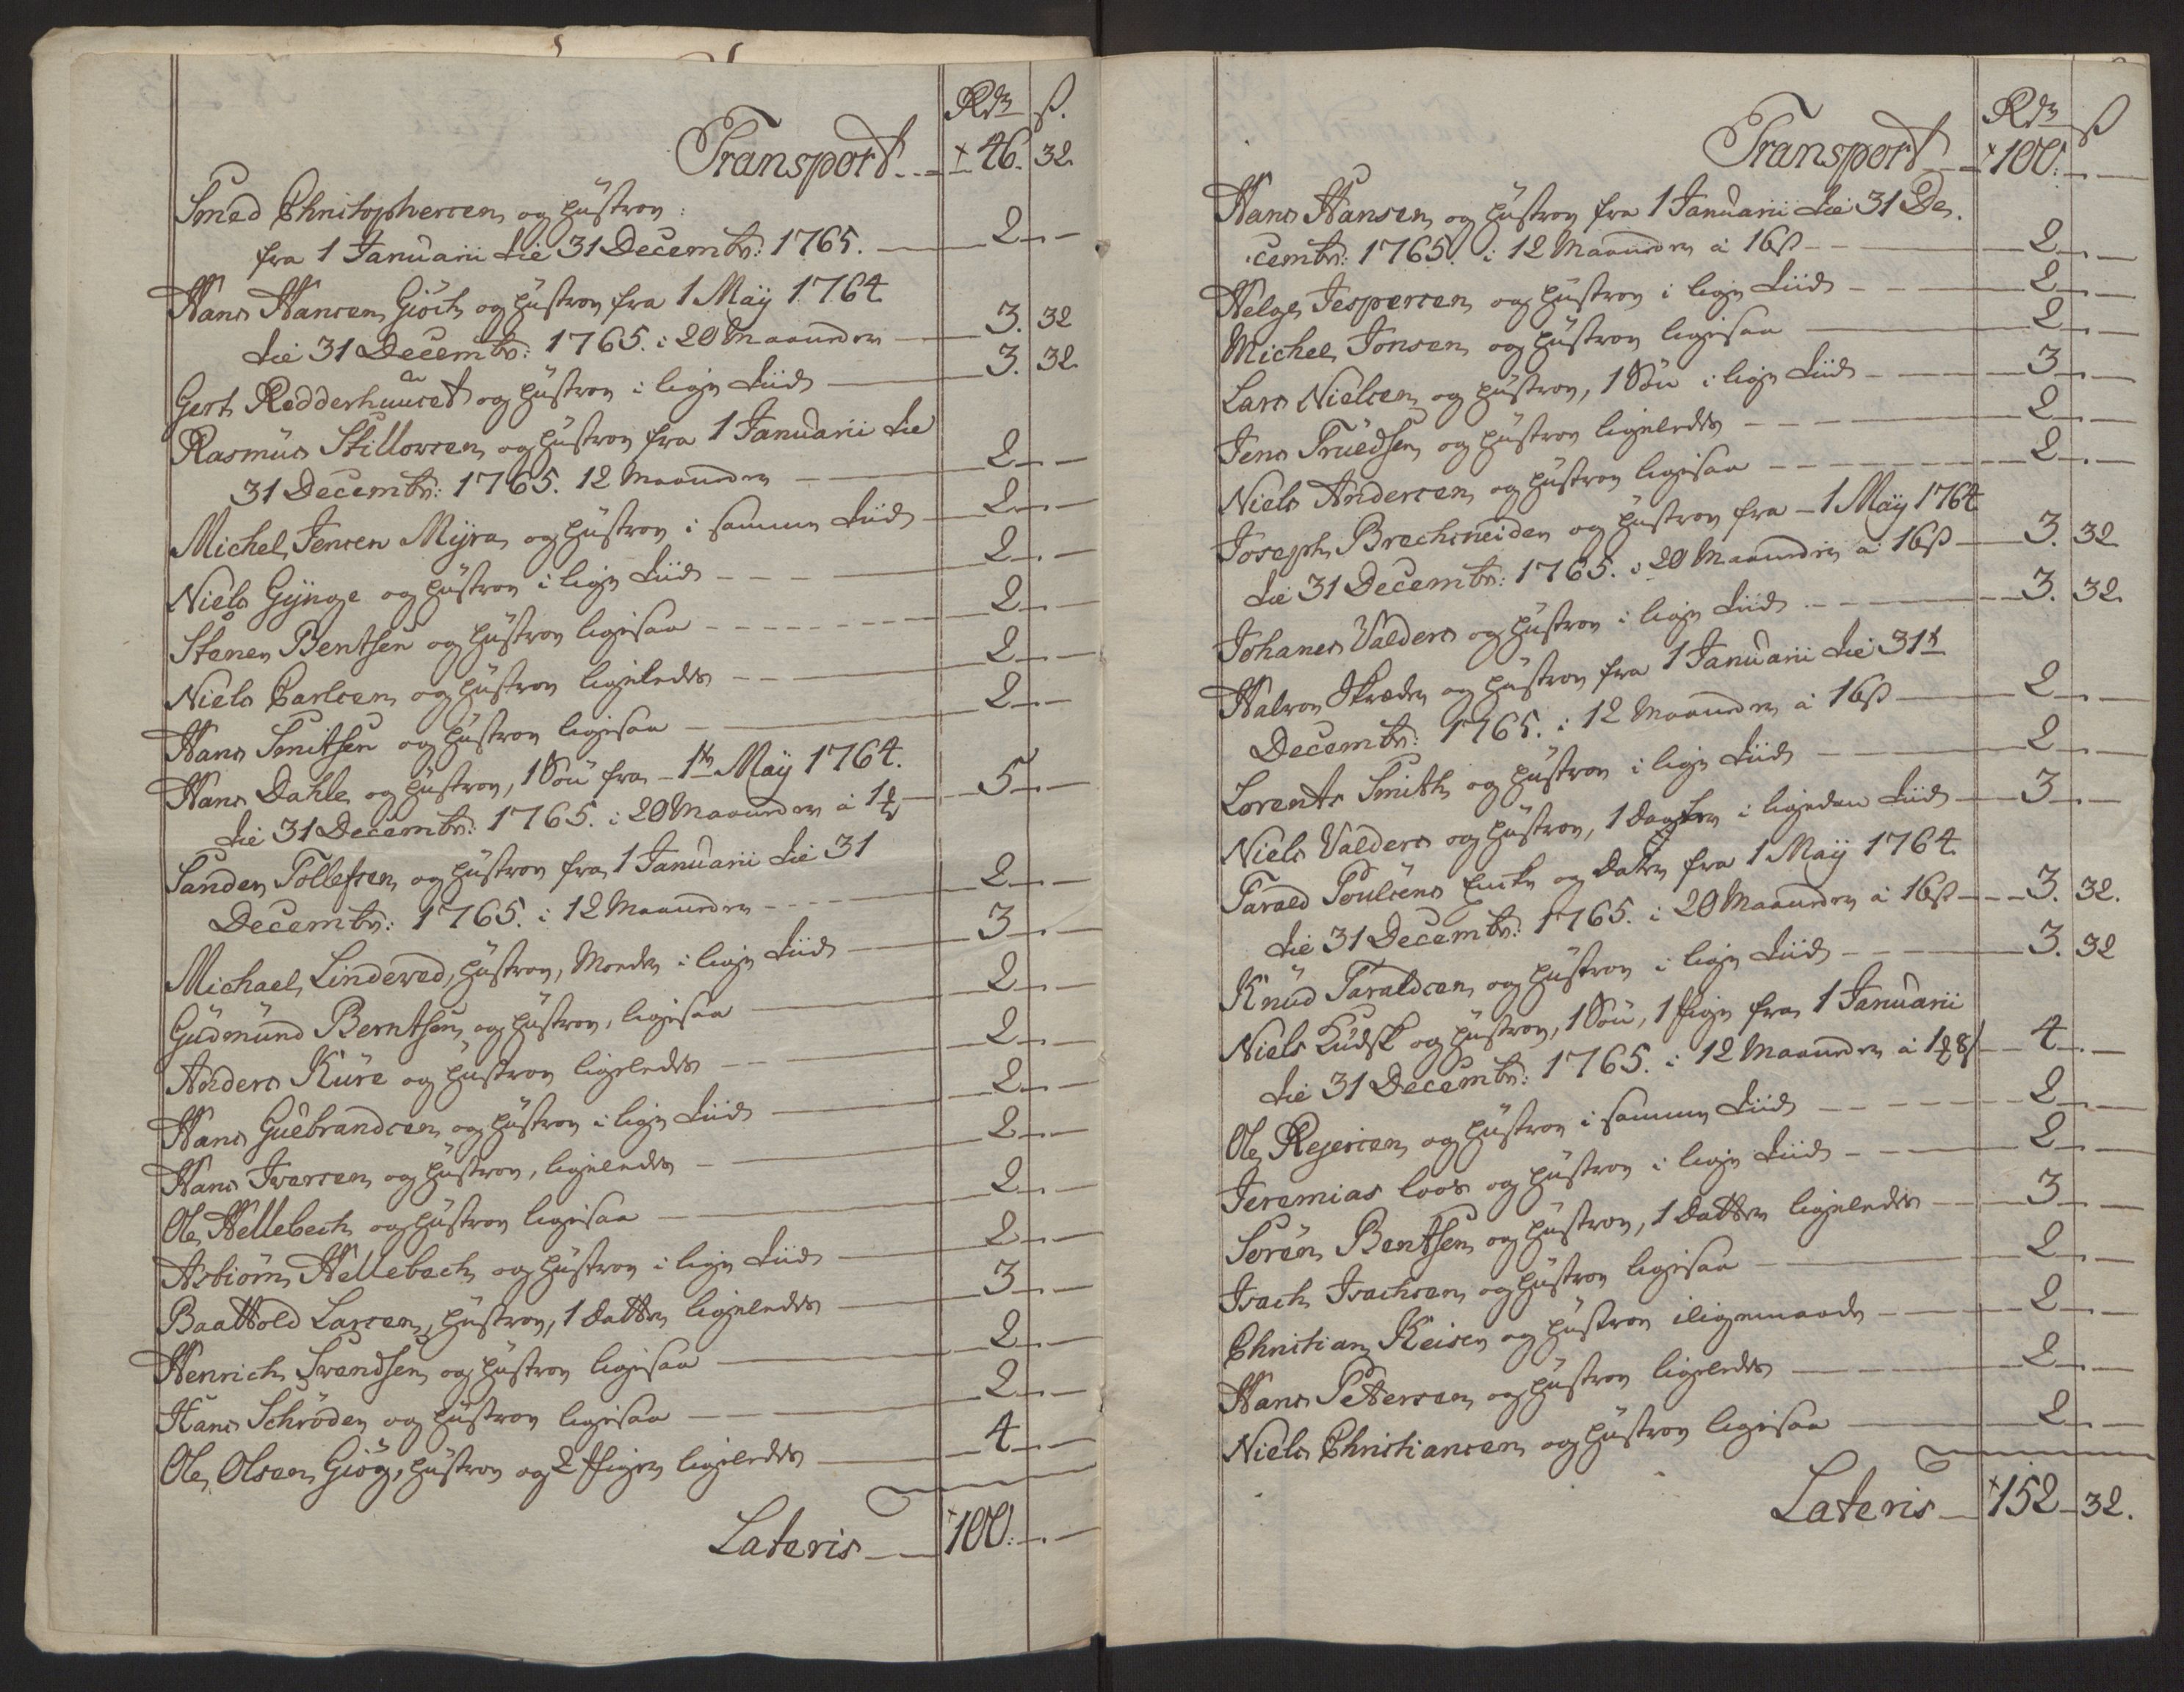 Rdr ß.
Transport - - 46. 32.
Smed Christophersen og Hustroe:
fra 1 Januarii til 31 Decembr: 1765. 2 - -
Hans Hansen Giöch og Hustroe fra 1 Maÿ 1764
til 31 Decembr: 1765. i 20 Maaneder 3. 32
Gert Redderhuuset og Hustroe i lige Tiid 3. 32.
Rasmus Stillovsen og Hustroe fra 1 Januarii til
31 Decembr: 1765. 12 Maaneder 2 - -
Michel Jensen Mÿra og Hustroe i samme Tiid 2 - -
Niels Gÿnge og Hustroe i lige Tiid 2 - -
Stanen Bentsen og Hustroe ligesaa 2 - -
Niels Carlsen og Hustroe ligeledes 2 - -
Hans Smitsen og Hustroe ligesaa 2 - -
Hans Dahle og Hustroe, 1 Sön fra 1te Maÿ 1764.
til 31 Decembr: 1765. i 20 Maaneder à 1 5 - -
Sanden Tollefsen og Hustroe fra 1 Januarii til 31
Decembr: 1765. i 12 Maaneder 2 - -
Michael Lindeved, Hustroe, Moder i lige Tiid 3 - -
Gudmund Berntsen og Hustroe, ligesaa 2 - -
Anders Kure og Hustroe ligeledes 2 - -
Hans Guebrandsen og Hustroe i lige Tiid 2 - -
Hans Iversen og Hustroe, ligeledes 2 - -
Ole Hellebech og Hustroe ligesaa 2 - -
Asbiörn Hellebech og Hustroe i lige Tiid 2 - -
Baattold Larsen, Hustroe, 1 Datter ligeledes 3 - -
Henrich Svendsen og Hustroe ligesaa 2 - -
Hans Schröder og Hustroe ligesaa 2 - -
Ole Olsen Giög, Hustroe og 2 Piger ligeledes 4 - -
Lateris 100. - -
Rdr ß
Transport 100. - -
Hans Hansen og Hustroe fra 1 Januarii til 31 De.
cembr: 1765. i 12 Maaneder à 16ß 2 - -
Helge Jespersen og Hustroe i lige Tiid 2 - -
Michel Jonsen og Hustroe ligesaa 2 - -
Lars Nielsen og Hustroe, 1 Sön i lige Tiid 3 - -
Jens Truedsen og Hustroe ligeledes 2 - -
Niels Andersen og Hustroe ligesaa 2 - -
Joseph Brechsneider og Hustroe fra 1 Maÿ 1764
til 31 Decembr: 1765. i 20 Maaneder à 16ß 3. 32
Johanes Valders og Hustroe i lige Tiid 3. 32.
Halvor Skreder og Hustroe fra 1 Januarii til 31t
Decembr: 1765. i 12 Maaneder à 16ß 2 - -
Lorents Smith og Hustroe i lige Tiid 2 - -
Niels Valders og Hustroe, 1 Dogter i ligedan Tiid 3 - -
Tarald Poulsens Encke og Dater fra 1 Maÿ 1764.
til 31 Decembr: 1765. i 20 Maaneder à 16ß 3. 32.
Knud Taraldsen og Hustroe i lige Tiid 3. 32
Niels Kudsk og Hustroe, 1 Sön, 1 Pige fra 1 Januarii
til 31 Decembr: 1765. i 12 Maaneder à 4 - -
Ole Rejersen og Hustroe i samme Tiid 2 - -
Jeremias Loos og Hustroe i lige Tiid 2 - -
Sören Bentsen og Hustroe, 1 Datter ligeledes 3 - -
Isach Isachsen og Hustroe ligesaa 2 - -
Christian Keiser og Hustroe iligemaade 2 - -
Hans Pettersen og Hustroe ligeledes 2 - -
Niels Christiansen og Hustroe ligesaa 2 - -
Lateris 152 - 32.